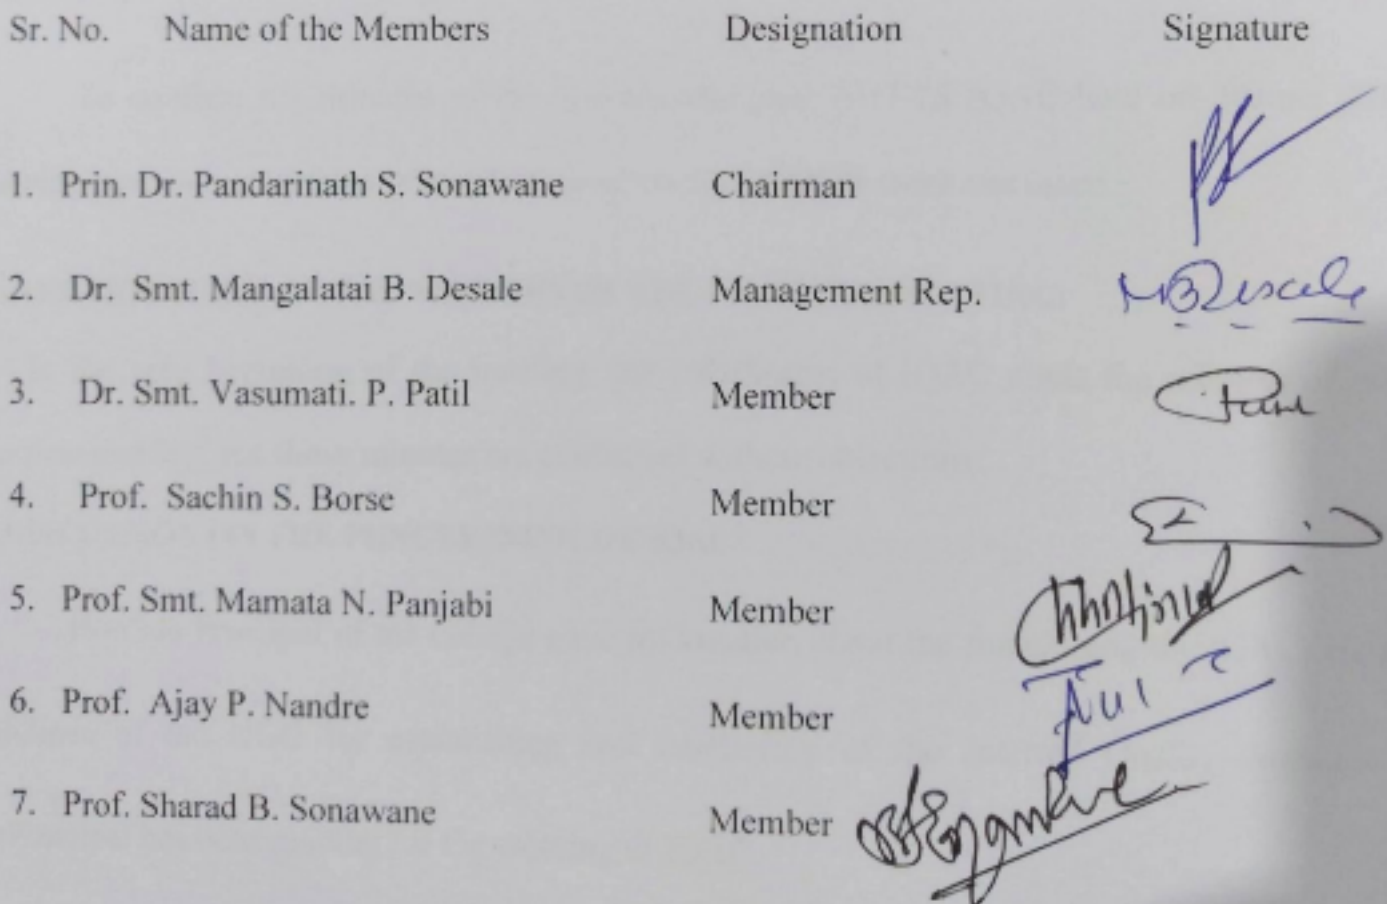 Sr. No. Name of the Members Designation Signature
1. Prin. Dr. Pandarinath S. Sonawane Chairman
2. Dr. Smt. Mangalatai B. Desale Management Rep. MBDesale
3. Dr. Smt. Vasumati. P. Patil Member
4. Prof. Sachin S. Borse Member
5. Prof. Smt. Mamata N. Panjabi Member
6. Prof. Ajay P. Nandre Member
7. Prof. Sharad B. Sonawane Member